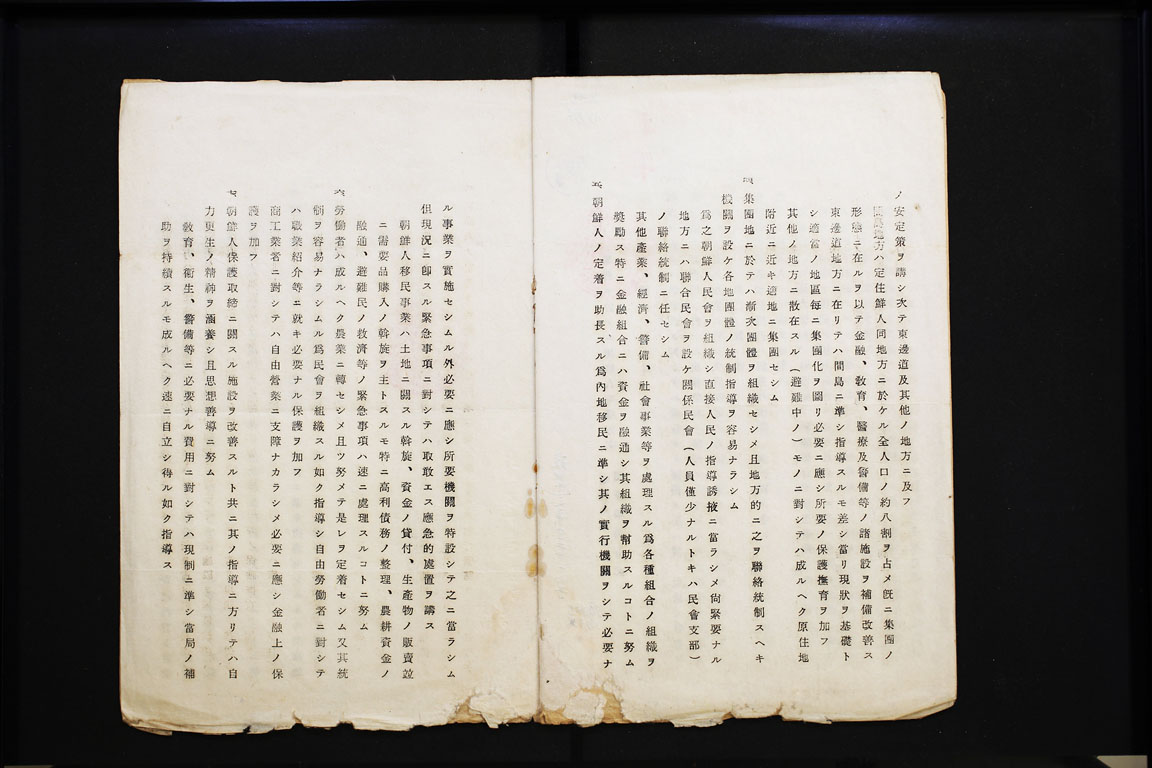 ノ安定策ヲ講シ次テ東邊道及其他ノ地方ニ及フ
間島地方ハ定住鮮人同地方ニ於ケル全人口ノ約八割ヲ占メ旣ニ集團ノ
形態ニ在ルヲ以テ金融、敎育、醫療及警備等ノ諸施設ヲ補備改善ス
東邊道地方ニ在リテハ間島ニ準シ指導スルモ差シ當リ現狀ヲ基礎ト
シ適當ノ地區每ニ集團化ヲ圖リ必要ニ應シ所要ノ保護撫育ヲ加フ
其他ノ地方ニ散在スル(避難中ノ)モノニ對シテハ成ルヘク原住地
附近ニ近キ適地ニ集團セシム
四、集團地ニ於テハ漸次團體ヲ組織セシメ且地方的ニ之ヲ聯絡統制スヘキ
機關ヲ設ケ各地團體ノ統制指導ヲ容易ナラシム
爲之朝鮮人民會ヲ組織シ直接人民ノ指導誘掖ニ當ラシメ尙緊要ナル
地方ニハ聯合民會ヲ設ケ關係民會(人員僅少ナルトキハ民會支部)
ノ聯絡統制ニ任セシム
其他產業、經濟、警備、社會事業等ヲ處理スル爲各種組合ノ組織ヲ
獎勵ス特ニ金融組合ニハ資金ヲ融通シ其組織ヲ幇助スルコトニ努ム
五、朝鮮人ノ定着ヲ助長スル爲內地移民ニ準シ其ノ實行機關ヲシテ必要ナ
ル事業ヲ實施セシムル外必要ニ應シ所要機關ヲ特設シテ之ニ當ラシム
但現況ニ卽スル緊急事項ニ對シテハ取敢エス應急的處置ヲ講ス
朝鮮人移民事業ハ土地ニ關スル斡旋、資金ノ貸付、生產物ノ販賣竝
ニ需要品購入ノ斡旋ヲ主トスルモ特ニ高利債務ノ整理、農耕資金ノ
融通、避難民ノ救濟等ノ緊急事項ハ速ニ處理スルコトニ努ム
六、勞働者ハ成ルヘク農業ニ轉セシメ且ツ努メテ是レヲ定着セシム又其統
制ヲ容易ナラシムル爲民會ヲ組織スル如ク指導シ自由勞働者ニ對シテ
ハ職業紹介等ニ就キ必要ナル保護ヲ加フ
商工業者ニ對シテハ自由營業ニ支障ナカラシメ必要ニ應シ金融上ノ保
護ヲ加フ
七、朝鮮人保護取締ニ關スル施設ヲ改善スルト共ニ其ノ指導ニ方リテハ自
力更生ノ精神ヲ涵養シ且思想善導ニ努ム
敎育、衞生、警備等ニ必要ナル費用ニ對シテハ現制ニ準シ當局ノ補
助ヲ持續スルモ成ルヘク速ニ自立シ得ル如ク指導ス